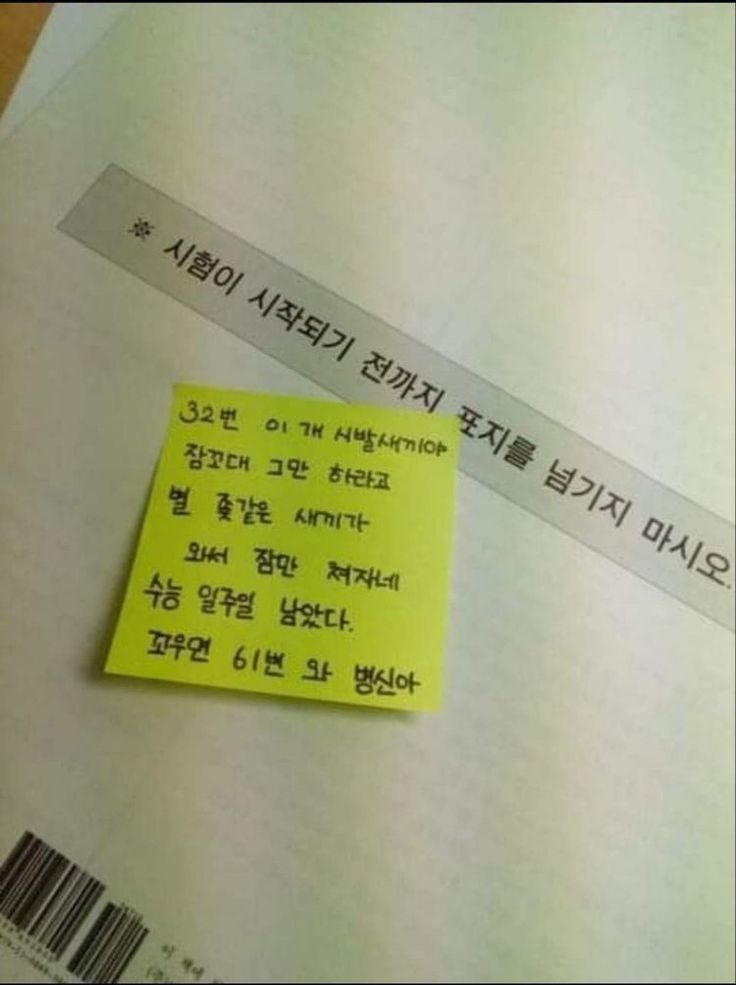 ※ 시험이 시작되기 전까지 표지를 넘기지 마시오.
32번 이 개 시발새끼야
잠꼬대 그만 하라고
별 좆같은 새끼가
와서 잠만 쳐자네
수능 일주일 남았다.
꼬우면 61번 와 병신아
이 책에